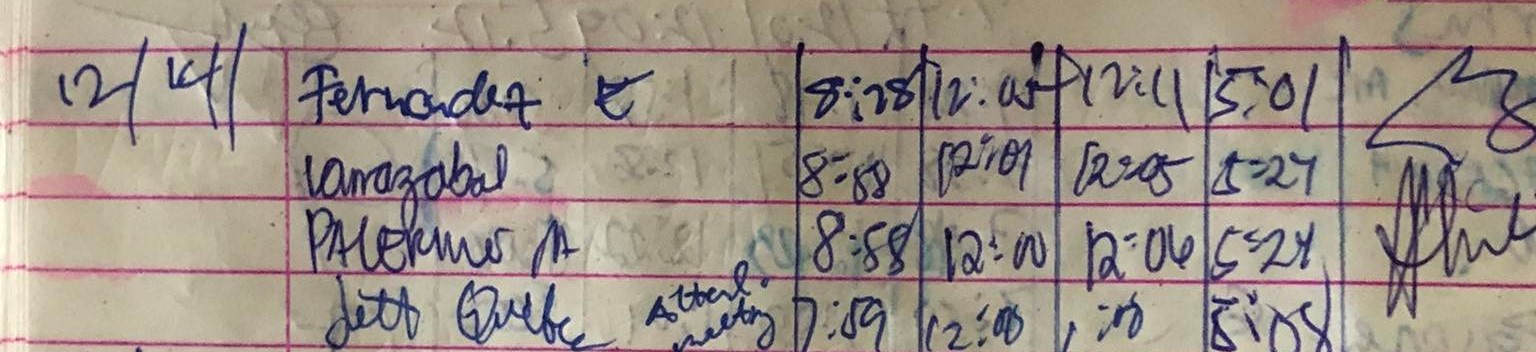 12/14/ Fernandez E 8:28 12:05 12:11 5:01
Larrazabal 8:58 12:01 12:05 5:27
PALERMO A 8:58 12:00 12:06 5:27
Jett Attend. meeting 7:59 12:00 5:08